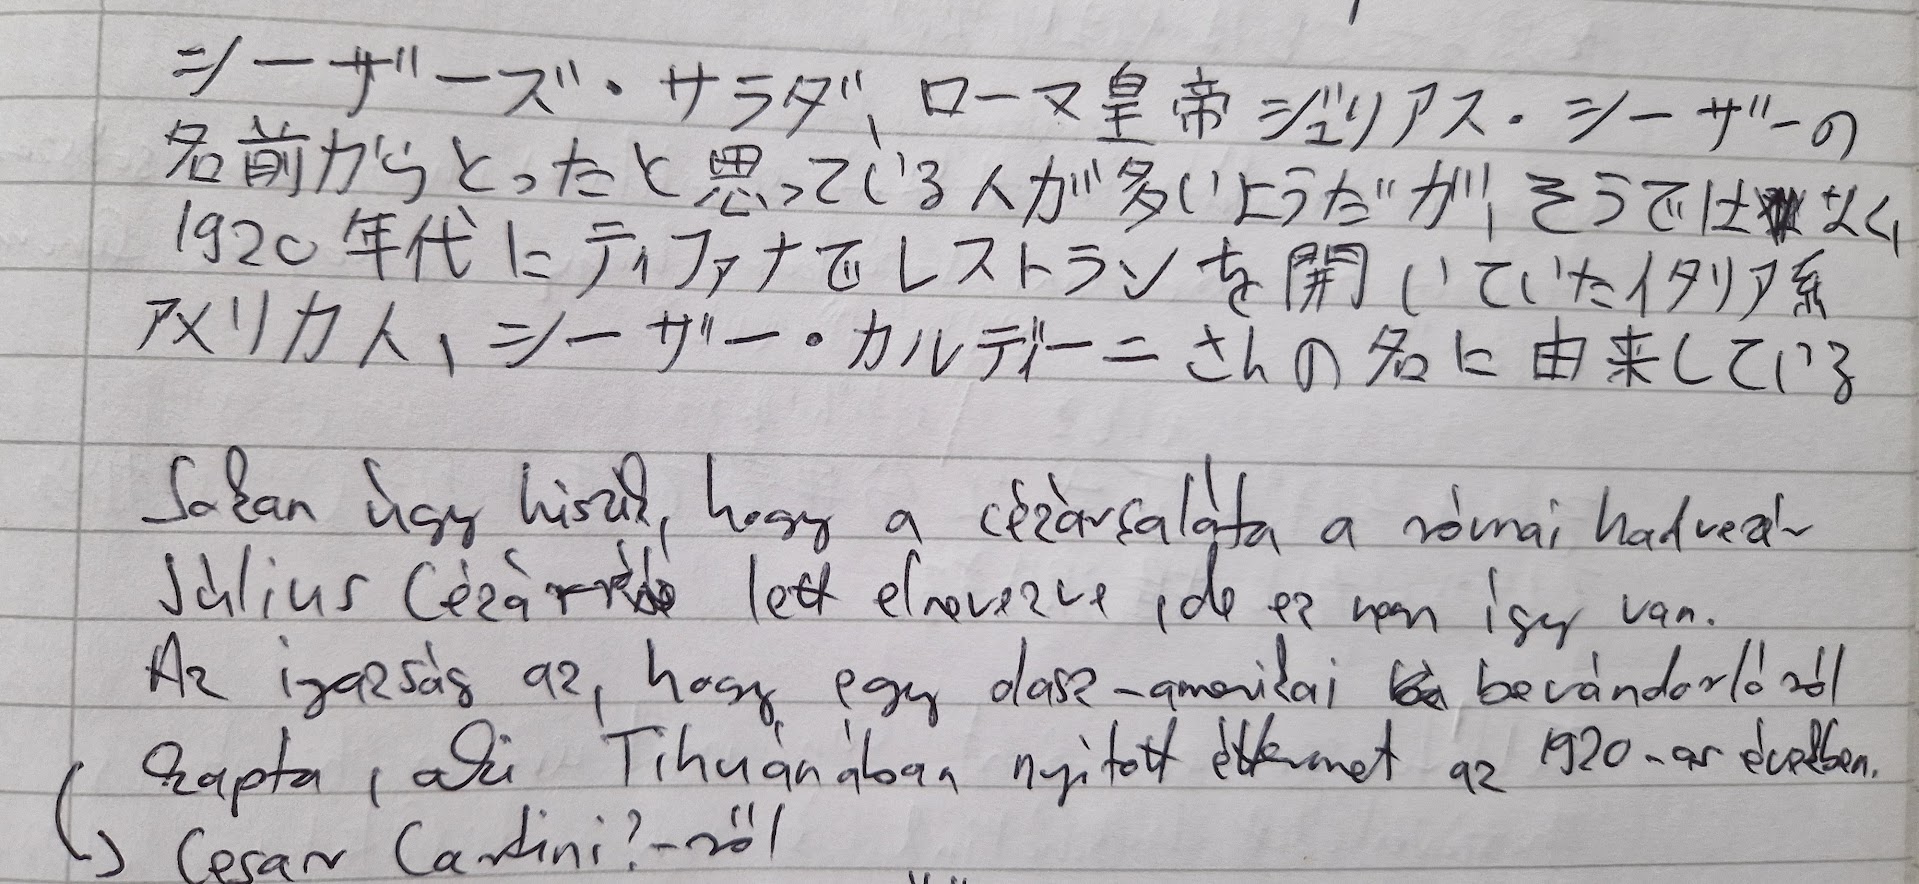 シーザーズ・サラダ、ローマ皇帝ジュリアス・シーザーの
名前からとったと思っている人が多いようだが、そうではなく、
1920年代にティファナでレストランを開いていたイタリア系
アメリカ人、シーザー・カルディーニさんの名に由来している
Sokan úgy hiszik, hogy a cézársaláta a római hadvezér
Július Cézárról lett elnevezve, de ez nem így van.
Az igazság az, hogy egy olasz-amerikai bevándorlóról
kapta, aki Tihuánában nyitott éttermet az 1920-as években.
Cesar Cardini?-ről